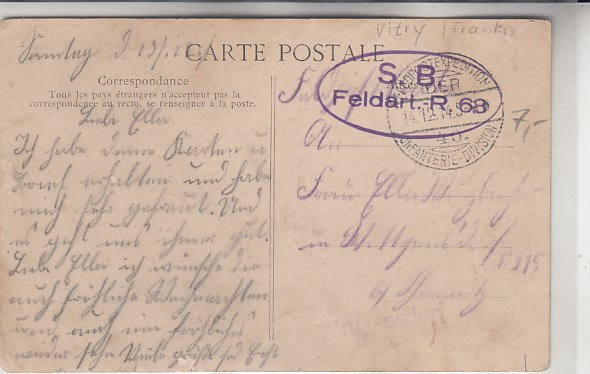 Vitry (Frankr
Sonntag d. 13/.12.
CARTE POSTALE
Correspondance
Tous les pays étrangers n'acceptent pas la
correspondance au recto, se renseigner à la poste.
Liebe Ella
Ich habe deine Karten u
Brief erhalten und habe
mich sehr gefreut. Und
es geht uns immer gut.
Liebe Ella ich wünsche dir
auch fröhliche Weihnachten
und auch ein fröhliches
wieder sehn Viele grüße
S. B.
Feldart.-R. 68
FELDPOSTEXPEDITION
DER
14.12.14
40.
INFANTERIE-DIVISION
7,-
An
Frau Ella
in Wittgensdorf
b/ Chemnitz